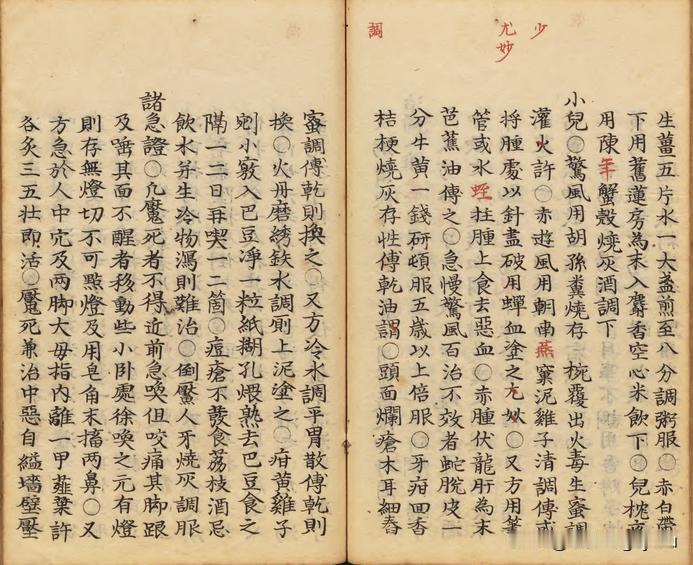 少
尤妙
調
生薑五片水一大盞煎至八分調粥服○赤白帶
下用舊蓮房為末入麝香空心米飲下○兒枕
用陳年蟹殼燒灰酒調下
小兒○驚風用胡孫糞燒存一椀覆出火毒生蜜調
灌火許○赤遊風用朝南燕窠泥雞子清調傅或
將腫處以針盡破用蟬血塗之尤妙○又方用筆
管或水蛭拄腫上食去惡血○赤腫伏龍肝為末
芭蕉油傅之○急慢驚風百治不效者蛇脫皮一
分牛黃一錢研頓服五歲以上倍服○牙疳四香
桔梗燒灰存性傅乾油調○頭面爛瘡木耳細舂
蜜調傅乾則換之○又方冷水調平胃散傅乾則
換○火丹磨綉鉄水調廁上泥塗之○疳黃雞子
剜小竅入巴豆淨一粒紙糊孔煨熟去巴豆食之
隔一二日再喫一二箇○痘瘡不發食荔枝酒忌
飲水并生冷物瀉則難治○倒黶人牙燒灰調服
諸急證○凡魘死者不得近前急喚但咬痛其脚跟
及唾其面不醒者移動些小卧處徐喚之元有燈
則存無燈切不可點燈及用皂角末擂兩鼻○又
方急於人中穴及兩脚大毋指內離一甲薤葉許
各灸三五壮即活○魘死兼治中惡自縊墻壁壓